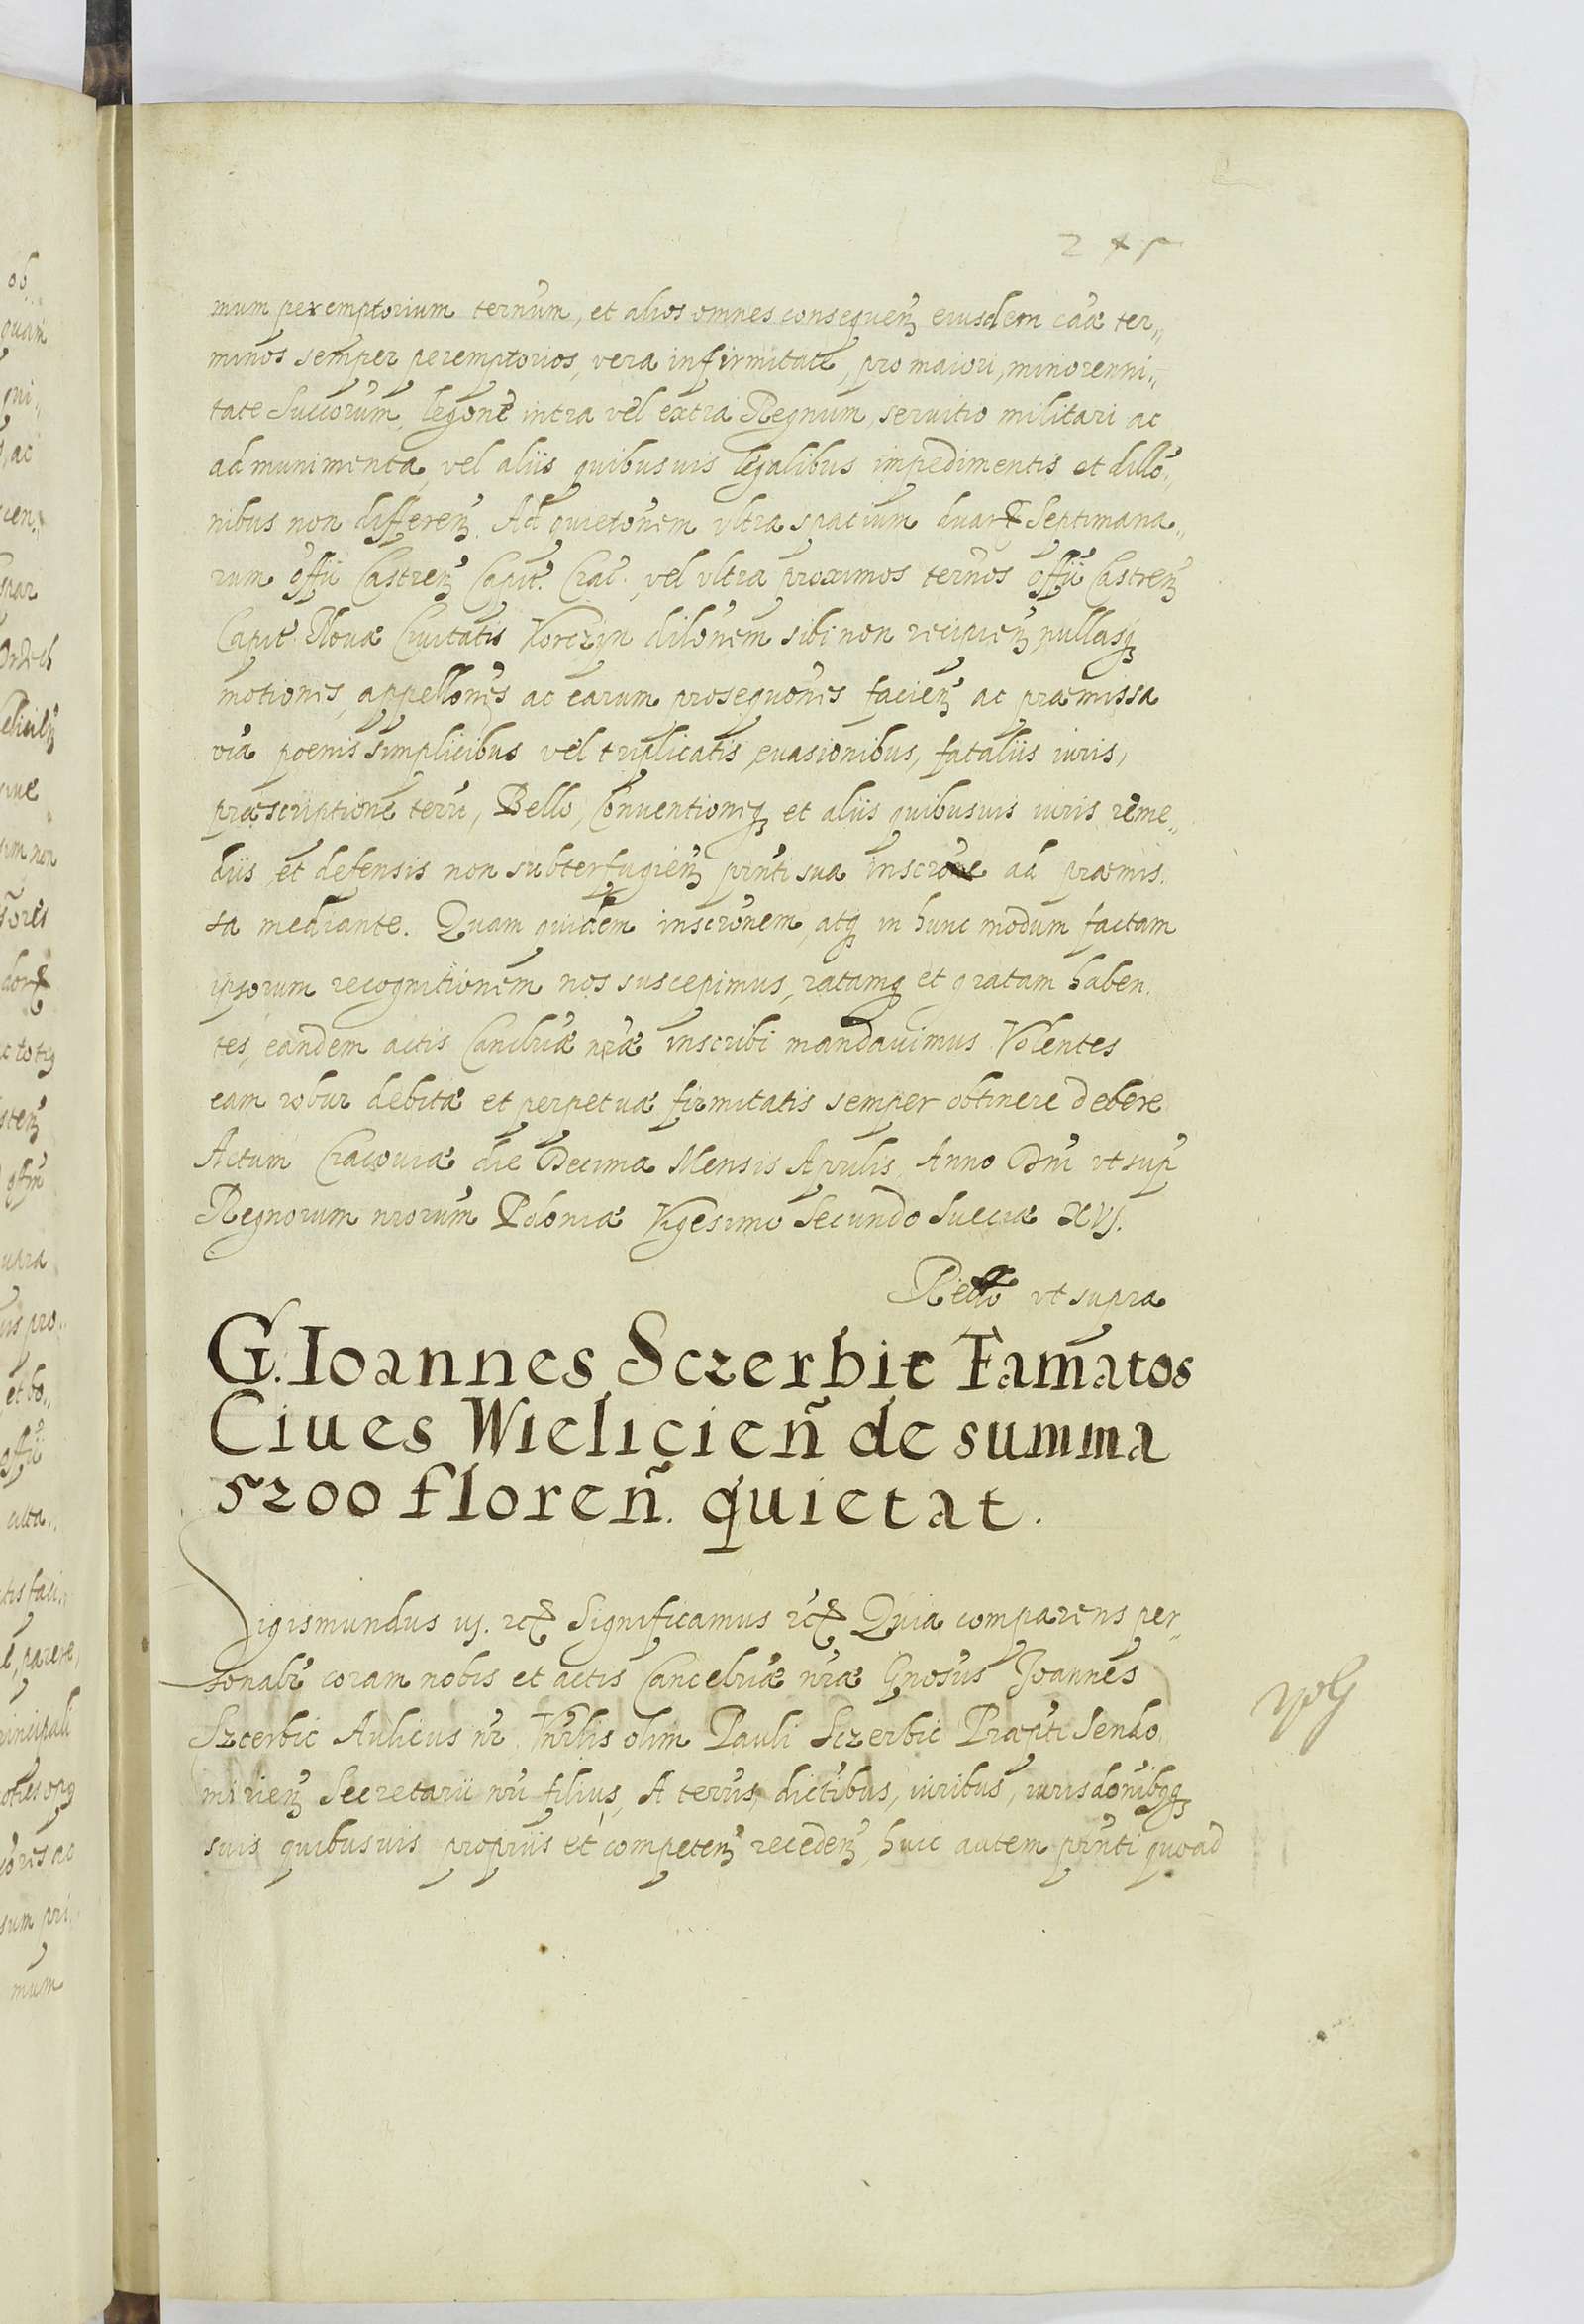 245
mum peremptorium ternũm, et alios omnes consequeñ eiusdem cãæ ter„
minos semper peremptorios, vera infirmitate, pro maiori, minorenni„
tate Succorum, legõne intra vel extra Regnum, seruitio militari ac
ad munimenta, vel aliis quibusuis legalibus impedimentis et dillõ„
nibus non differeñ. Ad quietõnem vltra spacium duarꝝ Septimana„
rum offii Castreñ Capit. Crac. vel vltra proximos ternõs offii Castreñ
Capit. Nouæ Ciuitatis Korczyn dilõnem sibi non recipieñ, nullasq
motiones, appellõnes ac earum prosequõnes facieñ ac præmissa
via poenis simplicibus vel triplicatis, euasionibus, fataliis iuris,
præscriptione terr, Bello, Conuentioneq et aliis quibusuis iuris reme„
diis et defensis non subterfugieñ pñti sua inscrõne ad præmis
sa mediante. Quam quidem inscrõnem, atq in hunc modum factam
ipsorum recognitionem nos suscepimus, ratamq et gratam haben
tes, eandem actis Cancellriæ nræ inscribi mandauimus Volentes
eam robur debitæ et perpetuæ firmitatis semper obtinere debere
Actum Cracouiæ die Decima Mensis Aprilis Anno Dni vt sup
Regnorum nrorum Poloniæ Vigesimo Secundo Sueciæ XVj.
vt supra
G. Ioannes Sczerbic Famatos
Ciues Wielicieñ de summa
5200 floreñ. quietat.
Sigismundus iij. rcꝝ Significamus rcꝝ Quia comparens per„
sonalr coram nobis et actis Cancellriæ nræ Gnosus Joannes
Szcerbic Aulicus nr. Vnrlis olim Pauli Sczerbic Præpti Sendo
mirieñ Secretarii nri filius, A terris, dictibus, iuribus, iurisdõnibqq
suis quibusuis propriis et competeñ recedeñ, huic autem pñti quoad